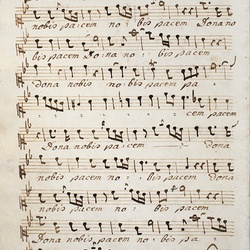 bis pacem no . bis pacem Dona no
bis pacem Dona no . . bis pacem
dona nobis pacem pa
. . . . cem pacem
Dona nobis pacem dona
nobis pacem no . . bis pa
nobis pacem no . . bis pacem
Dona nobis pacem . . pa